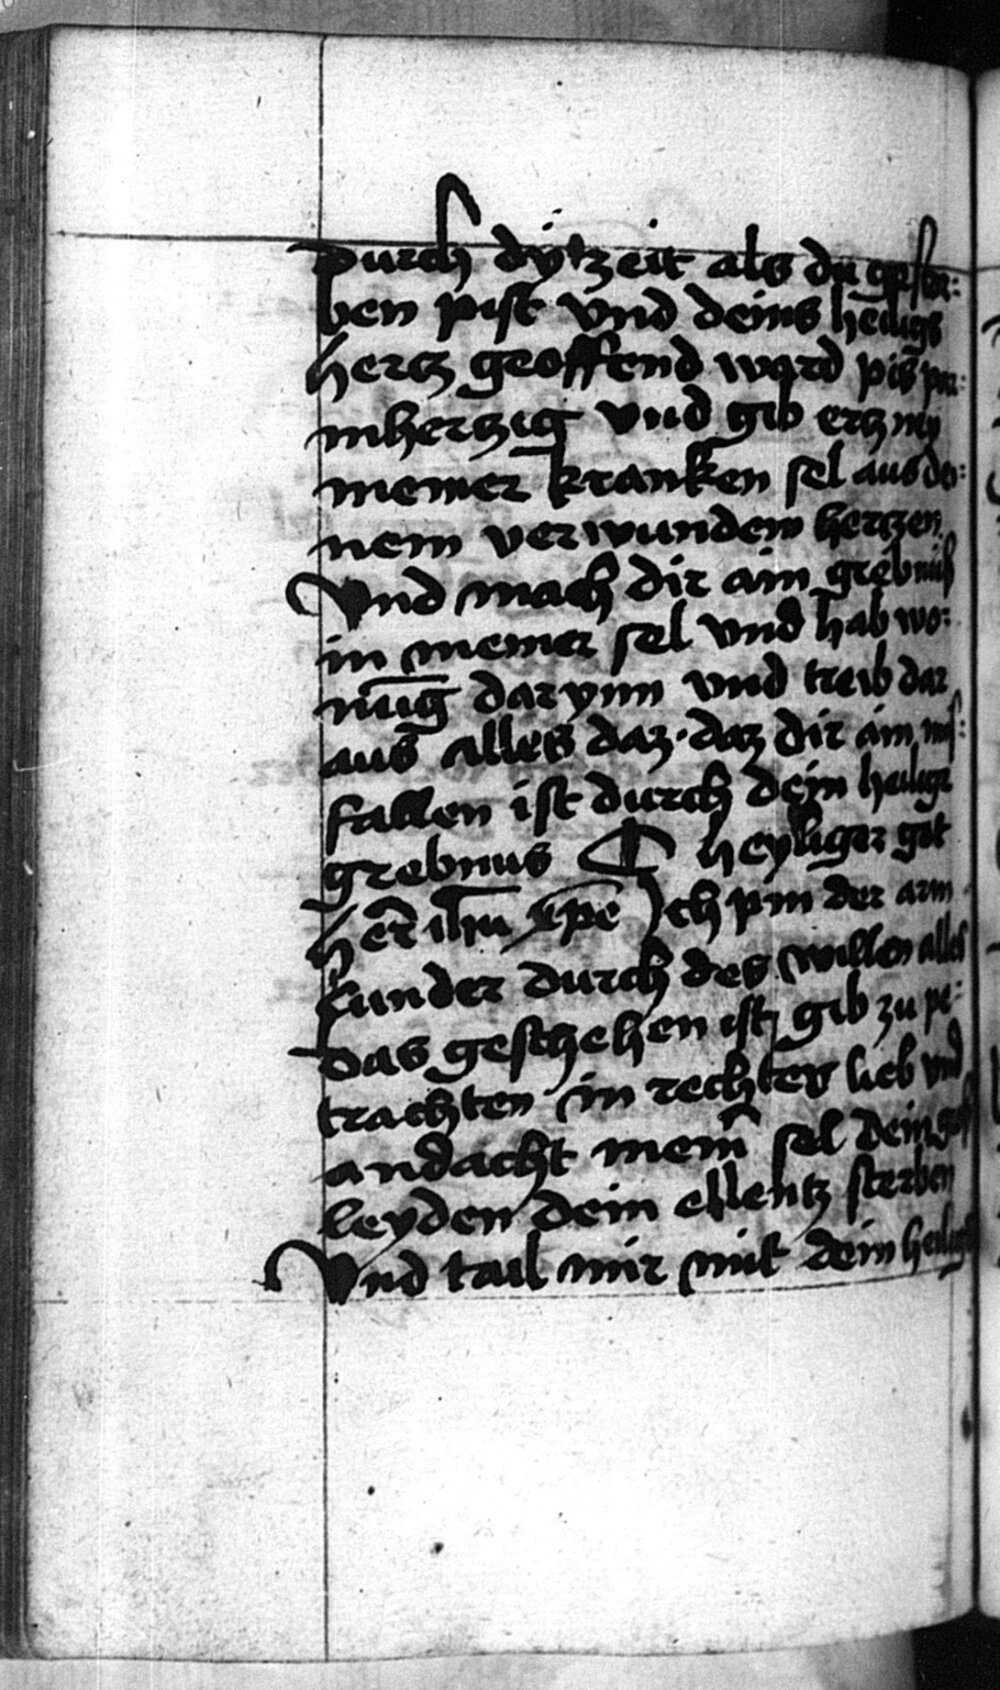 durch dytzeit als du gestor:
ben pist vnd deins heiligs
hertz geoffend ward pis par:
mhertzig vnd gib ertzney
meiner kranken sel aus dei:
nem verwunden hertzen
Vnd mach dir ain grebnuß
in meiner sel vnd hab wo:
nūg darynn vnd treib dar
aus alles daz · daz dir ain mis:
fallen ist durch dein heilige
grebnus ¶ heyliger got
her ihu xpe Ich pin der arm
sunder durch des willen alles
das geschehen ist gib zu pe:
trachten in rechter lieb vnd
andacht mein sel dein
leyden dein ellentz sterben
Vnd tail mir mit dein heilige